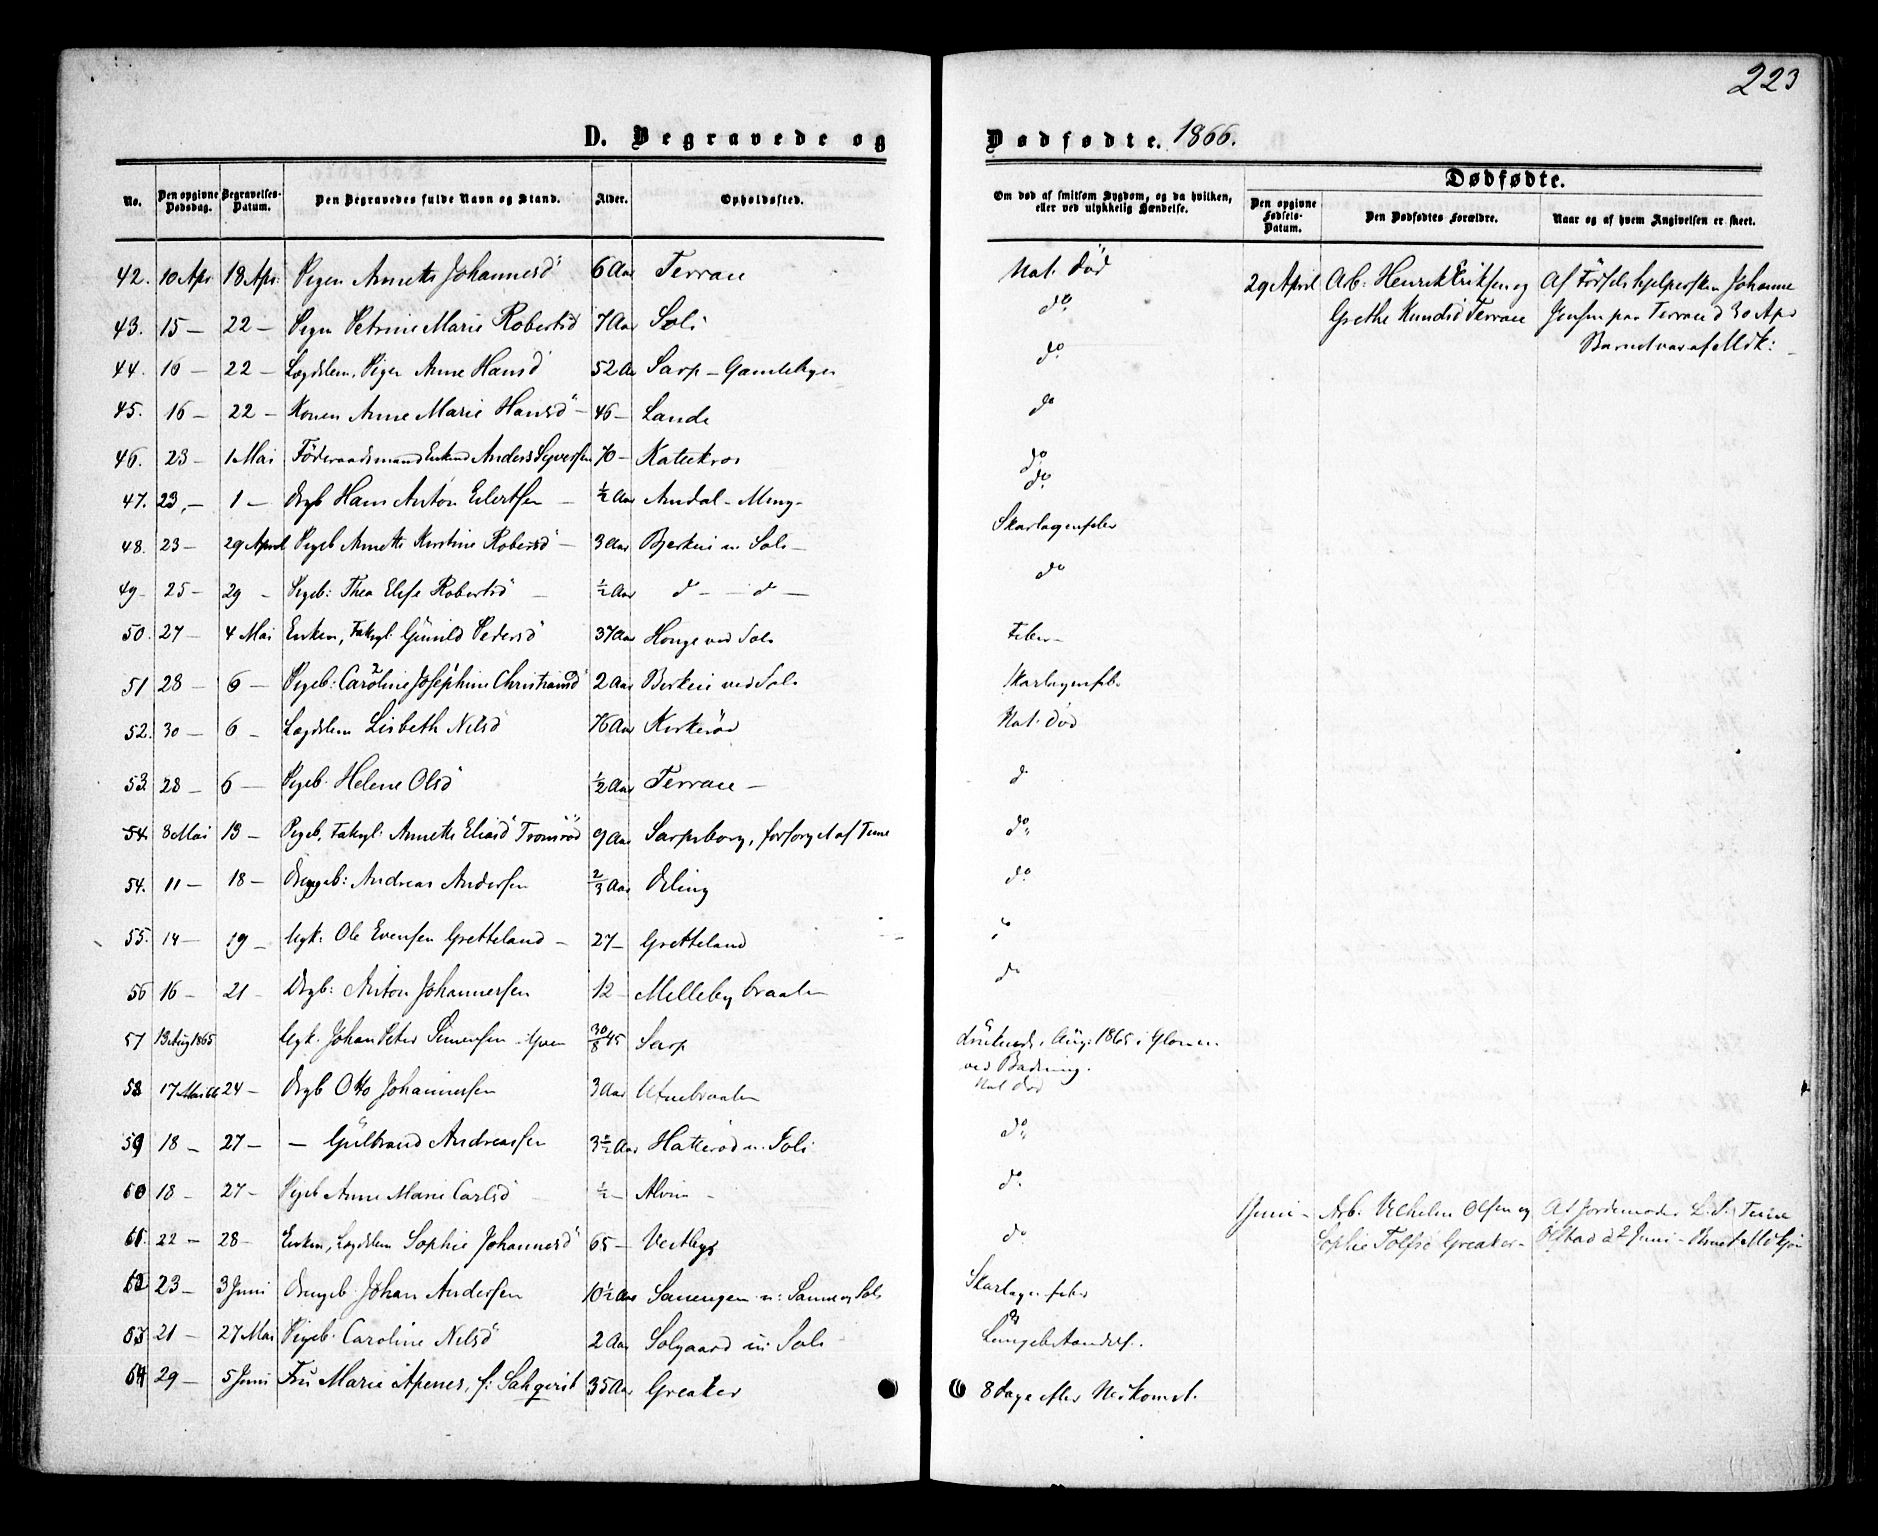 223
D. Begravede og Dødfødte. 1866.
No. Den opgivne Dødsdag. Begravelses-Datum. Den Begravedes fulde Navn og Stand. Alder. Opholdssted. Om død af smitsom Sygdom, og da hvilken, eller ved ulykkelig Hændelse.
Dødfødte.
Den opgivne Fødsels-Datum. Den Dødfødtes Forældre. Naar og af hvem Angivelsen er skeet.
42. 10 Apr 18 Apr. Pigen Annette Johannesd 6 Aar Terrace Nat. død
29 April Arb: Henrik Eriksen og Af Fødselshjelpersken Johanne
43. 15 — 22 — Pigen Petrine Marie Robertsd 7 Aar Soli do
Grethe Terrace Jensen paa Terrace d 30 Apr
Barnet var af Mdk:
44. 16 — 22 — Lægdslem, Pigen Anne Hansd 52 Aar Sarp — do
45. 16 — 22 — Konen Anne Marie Hansd — 46 — Lande do
46. 23 — 1 Mai Föderaadsmand Enkem Anders Syversen 70 — Katekros do
47. 23, — 1 — Drgb Hans Anton Eilertsen — ½ Aar Andal — Meng — do
48. 23 — 29 April Pigeb Annette Kirstine Robertsd — 3 Aar Berkeii u. Soli — Skarlagensfeber
49 — 25 — 29 — Pigeb: Thea Elise Robertsd — ½ Aar d — d — do
50. 27 — 4 Mai Enken, Fatigl. Gunild Pedersd 37 Aar Honge ved Soli Feber —
51 28 — 6 — Pigeb: Caroline Josephine Christiansd 2 Aar Berkeii ved Soli Skarlagensfeb.
52. 30 — 6 — Lægdslem Lisbeth Nilsd 76 Aar Kirkeröd Nat. död
53. 28 — 6 — Pigeb. Helene Olsd ½ Aar Terrace — d
54. 8 Mai 13 — Pigeb, Fatigl: Annette Eliasd Tromröd 9 Aar Sarpsborg, forsörget af Tune do,
54. 11 — 18 — Drengeb: Andreas Andersen 2/3 Aar Örling do
55. 14 — 19 — Ugk: Ole Evensen Gretteland — 27 — Gretteland
56 16 — 21 — Drgb: Anton Johannesen 12 — Mellebybraaten do
57 13 Aug 1865 Ugk. Johan Peter Simensen 30/8 45 Sarp Druknede i Aug: 1865 i Glommen
ved Badning.
58 17 Mai 66 24 — Drgb Otto Johannesen 3 Aar Utnebraaten Nat död
59 18 — 27 — — Gulbrand Andreasen 3½ Aar Hatteröd u. Soli do,
60 18 — 27 — Pigeb Anne Marie Carlsd ½ — Alvim — do.
61 22 — 28 — Enken, Lægdslem Sophie Johannesd 65 — Vestby do
1 Juni — Arb: Vilhelm Olsen og Af Jordemoder L. S. Tune
Sophie Tolfsd Greaker — Ölstad d 2 Juni — Barnet Mdkjön
62 23 — 3 Juni Drengeb. Johan Andersen 10½ Aar Sanengen u: Sanne og Soli Skarlagensfeber
63 21 — 27 Mai Pigeb. Caroline Nilsd 2 Aar Solgaard u: Soli Lungebetændels.
64 29 — 5 Juni Fru Marie Apenes, f: Sahlqvist 35 Aar Greaker 8 Dage efter Nedkomst.